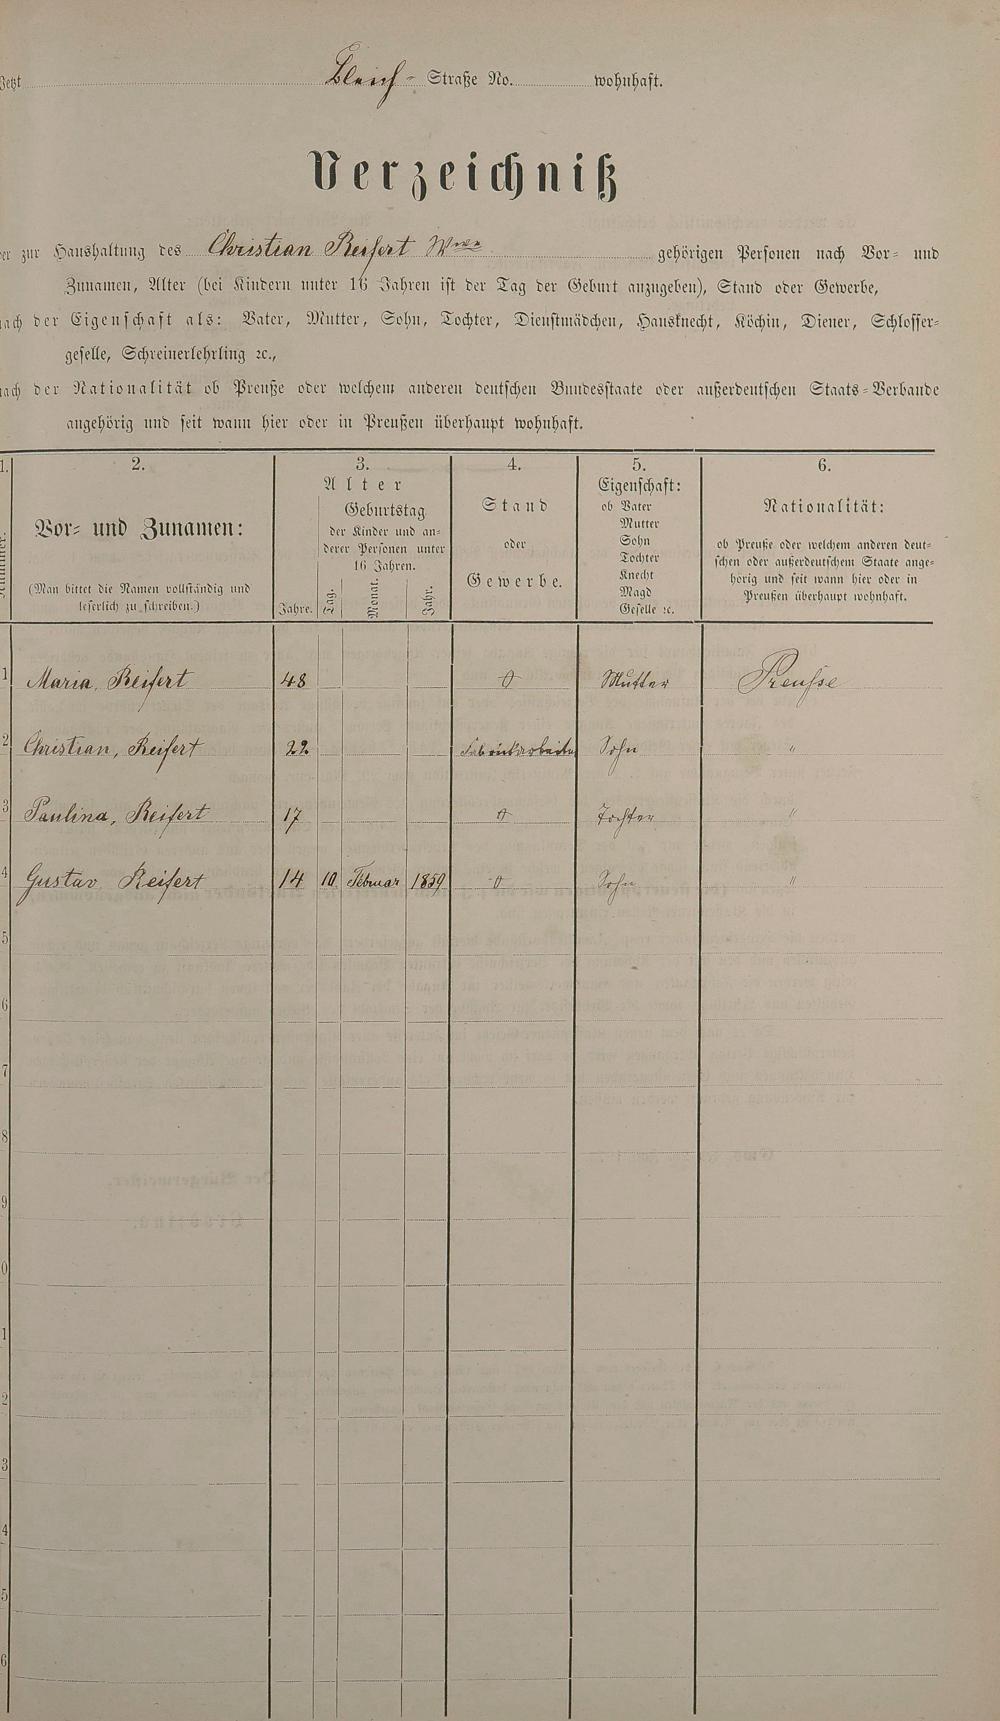 Jetzt Bleich- Straße No. wohnhaft.
Verzeichniß
er zur Haushaltung des Christian Reifert Wwe gehörigen Personen nach Vor- und
Zunamen, Alter (bei Kindern unter 16 Jahren ist der Tag der Geburt anzugeben), Stand oder Gewerbe,
nach der Eigenschaft als: Vater, Mutter, Sohn, Tochter, Dienstmädchen, Hausknecht, Köchin, Diener, Schlosser-
geselle, Schreinerlehrling ꝛc.,
nach der Nationalität ob Preuße oder welchem anderen deutschen Bundesstaate oder außerdeutschen Staats-Verbande
angehörig und seit wann hier oder in Preußen überhaupt wohnhaft.
1. 2. 3. 4. 5. 6.
Nummer.
Vor- und Zunamen:
(Man bittet die Namen vollständig und
leserlich zu schreiben.)
Alter
Geburtstag
der Kinder und an-
derer Personen unter
16 Jahren.
Jahre. Tag. Monat. Jahr.
Stand
oder
Gewerbe.
Eigenschaft:
ob Vater
Mutter
Sohn
Tochter
Knecht
Magd
Geselle ꝛc.
Nationalität:
ob Preuße oder welchem anderen deut-
schen oder außerdeutschem Staate ange-
hörig und seit wann hier oder in
Preußen überhaupt wohnhaft.
1 Maria, Reifert 48 Mutter Preusse
2 Christian, Reifert 22 Fabrickarbeiter Sohn "
3 Paulina, Reifert 17 Tochter "
4 Gustav Reifert 14 10 Februar 1859 Sohn "
5
6
7
8
9
0
1
2
3
4
5
6